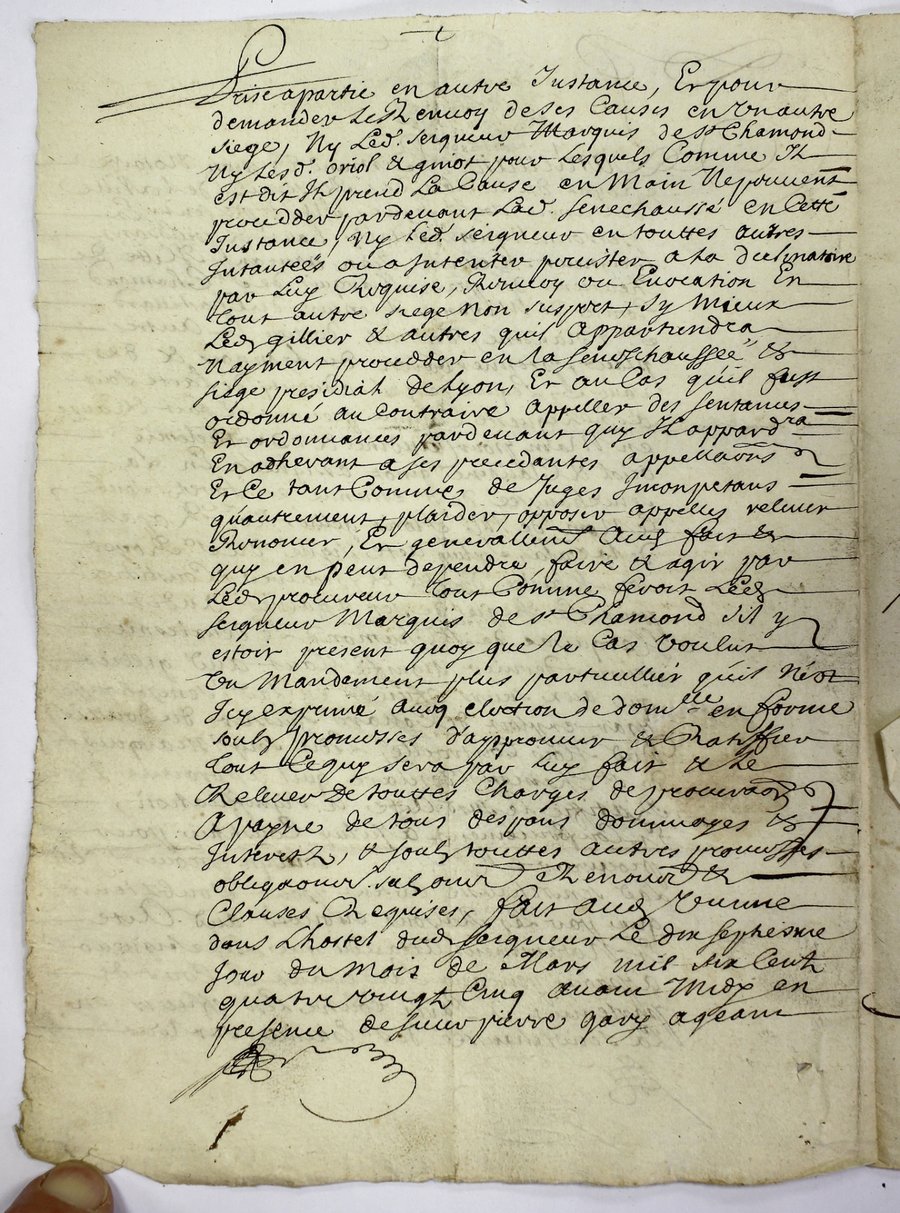 Prise a partie en autre Instance, Et pour
demander Le Renvoy de ses Causes en un autre
siege, Ny Led. seigneur Marquis de st Chamond
Ny Lesd. oriol & guiot pour Lesquels Comme Il
est dit Il prend La Cause en Main Ne peuvent
proceder pardevant Lad. senechaussé en Cette
Instance, Ny Led. seigneur en touttes autres
Intantées ou a Intenter persister a la declinatoire
par Luy Requise, Renvoy ou Evocation En
tout autre siege Non suspect, sy Mieux
Led gillier & autres quil Appartiendra
Nayment proceder en la seneschaussée &
siege presidial de Lyon, Et au Cas quil fust
ordonné au Contraire Appeller des sentances
Et ordonnances pardevant quy Il appardra
En adherant a ses precedantes appellaons
Et Ce tant Comme de Juges Inconpetans
quautrement, plaider, opposer appeller relever
Renoncer, Et generallemt Aud fait &
quy en peut dependre, faire & agir par
Led procureur tout Comme feroit Led
seigneur Marquis de st Chamond sil y
estoit present quoy que le Cas voulut
Un Mandement plus particullier quil N'est
Icy exprimé avec election de domlle en forme
soubz promesses d'approuver & Ratiffier
tout Ce quy sera par luy fait & Le
Relever de touttes Charges de procuraon
A payne de tous despans dommages &
Interestz, & soubz touttes autres promesses
obligaons & Renons &
Clauses Requises, fait aud
dans Lhostel dud seigneur Le dix septiesme
Jour du Mois de Mars mil six Centz
quatre vingtz Cinq avant Midy en
presence de sieur pierre gary ageant